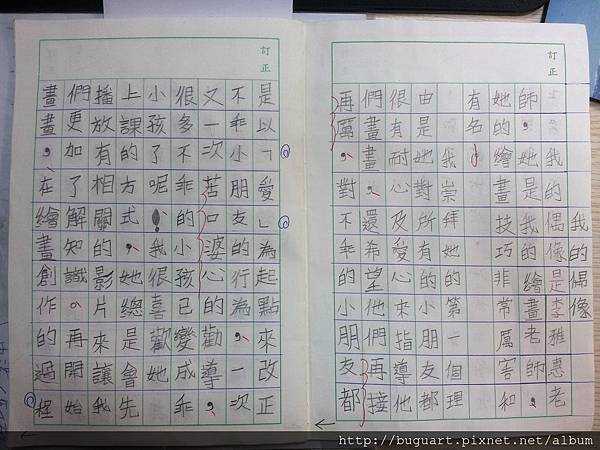 訂正
我的偶像
我的偶像是李雅惠老
師，她是我的繪畫老師，
她的繪畫技巧非常厲害和
有名，
我崇拜她的第一個理
由是她對所有的小朋友都
很有耐心及愛心來指導他
們畫畫，還希望他們再接
再厲，對不乖的小朋友都
訂正
是以「愛」為起點來改正
不乖小朋友的行為，一次
又一次苦口婆心的勸導，
很多不乖的小孩已變成乖
小孩了呢！我很喜歡她
上課的方式，她總是會先
播放有相關的影片來讓我
們更加了解知識。再開始
畫畫，在繪畫創作的過程
http://buguart.pixnet.net/album